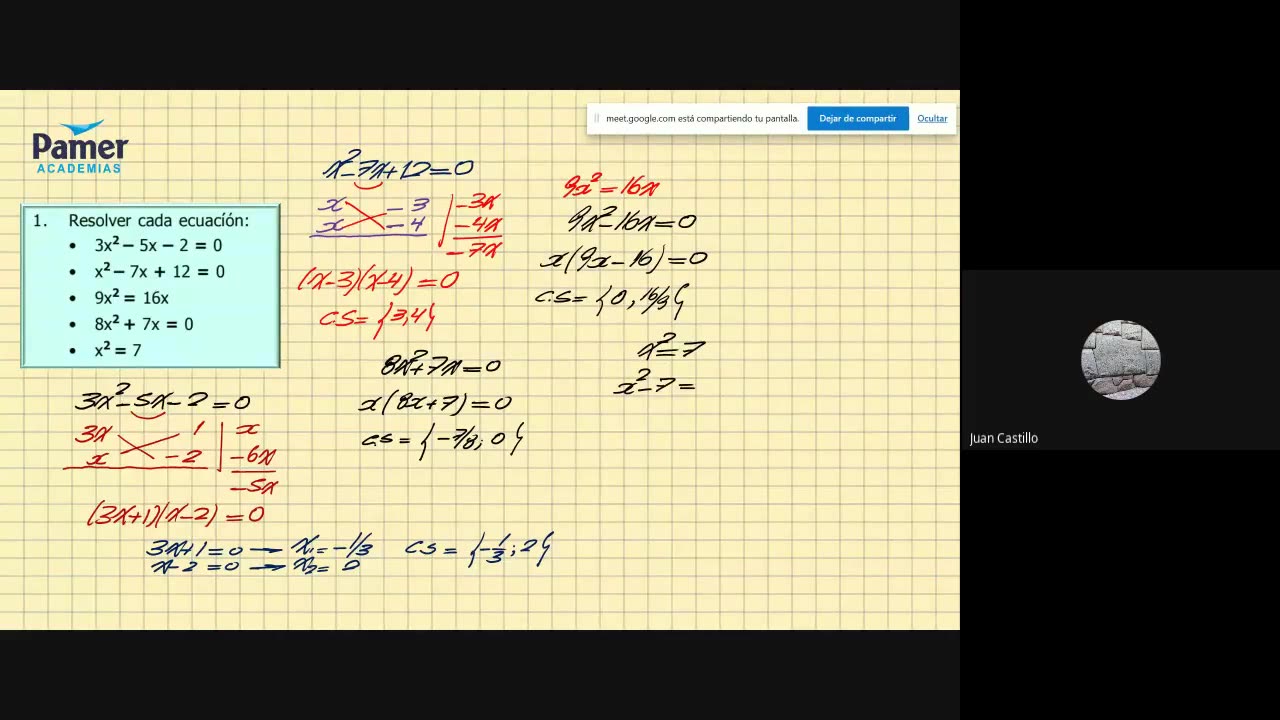 meet.google.com está compartiendo tu pantalla.
Dejar de compartir
Ocultar
Pamer
ACADEMIAS
1. Resolver cada ecuacíón:
• 3x² – 5x – 2 = 0
• x² – 7x + 12 = 0
• 9x² = 16x
• 8x² + 7x = 0
• x² = 7
3x²-5x-2=0
3x 1 | x
x -2 | -6x
-5x
(3x+1)(x-2)=0
3x+1=0 → x₁=-1/3
x-2=0 → x₂=
CS = {-1/3; 2}
x²-7x+12=0
x -3 | -3x
x -4 | -4x
-7x
(x-3)(x-4)=0
C.S={3,4}
8x²+7x=0
x(8x+7)=0
C.S = {-7/8; 0}
9x²=16x
9x²-16x=0
x(9x-16)=0
C.S= {0, 16/9}
x²=7
x²-7=
Juan Castillo